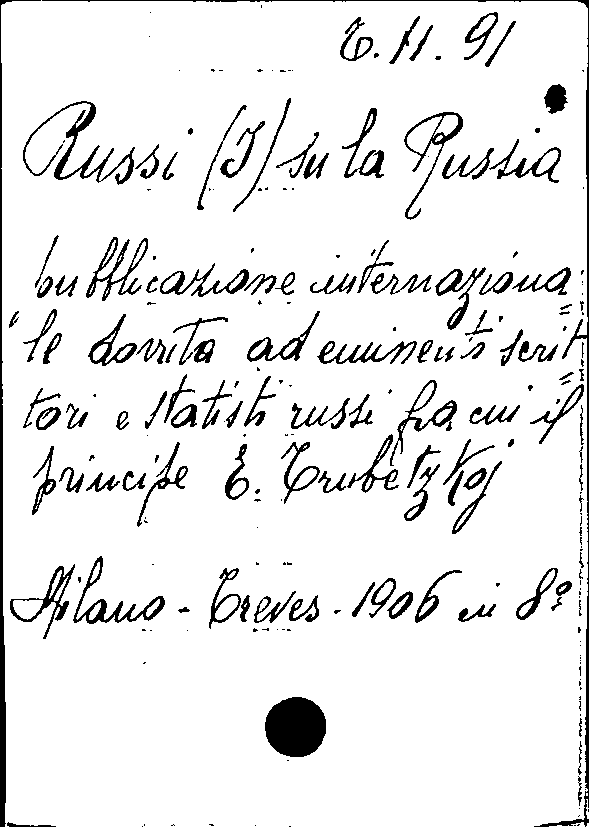 T. H. 91
Russi (I) su la Russia
pubblicazione internaziona=
le dovuta ad eminenti scrit=
tori e statisti russi fra cui il
principe E. Trubetzkoj
Milano - Treves - 1906 in 8º